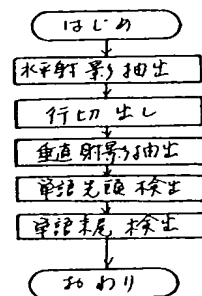 はじめ
水平射影抽出
行切出し
垂直射影抽出
単語先頭検出
単語末尾検出
おわり